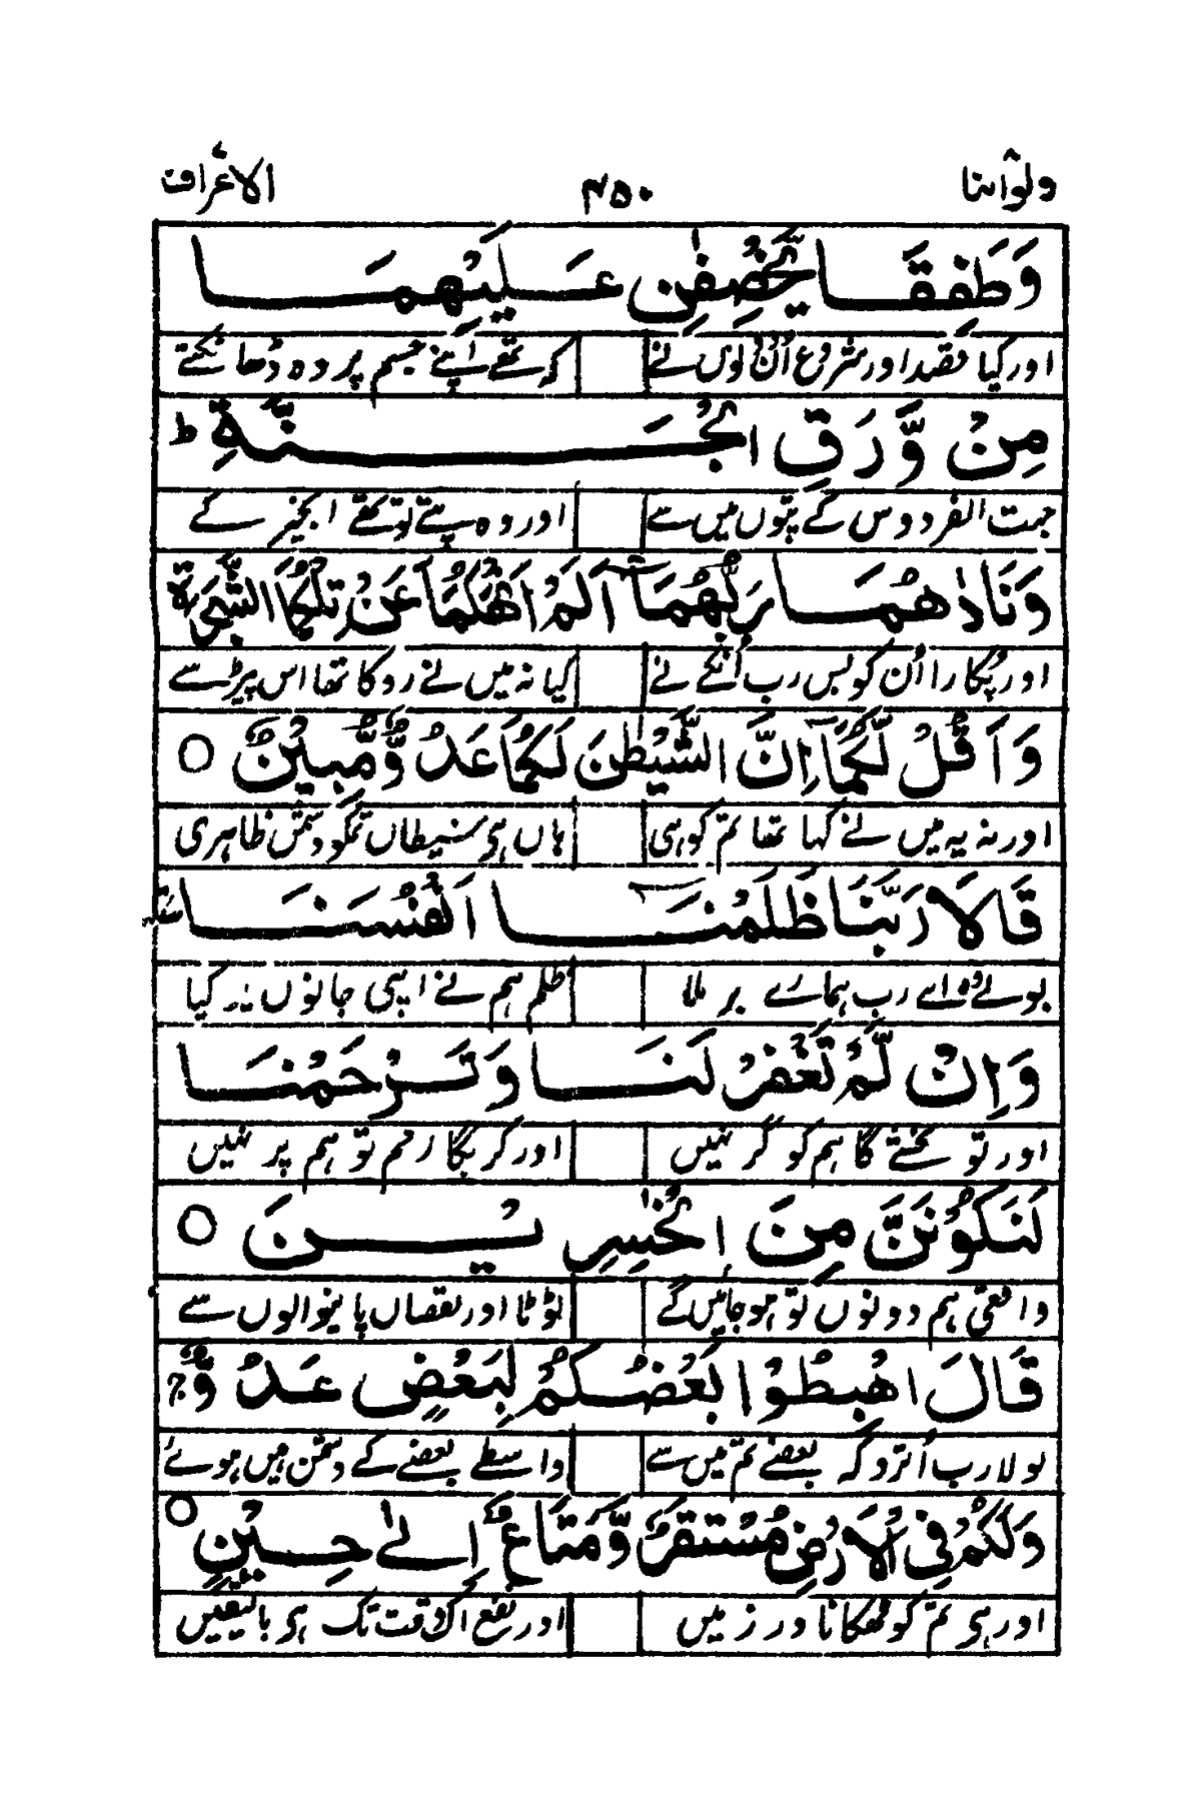 ولواننا ۴۵۰ الاعراف
وَطَفِقَا يَخْصِفٰنِ عَلَيْهِمَا
اور کیا قصد اور شروع اُن لوں نے کہ تھے اپنے جسم پر وہ ڈھانکتے
مِنْ وَّرَقِ الْجَنَّةِ ط
جنت الفردوس کے پتوں میں سے اور وہ پتے تو تھے انجیر کے
وَنَادٰهُمَا رَبُّهُمَآ اَلَمْ اَنْهَكُمَا عَنْ تِلْكُمَا الشَّجَرَةِ
اور پُکارا اُن کو بس رب اُنکے نے کیا نہ میں نے روکا تھا اس پیڑ سے
وَاَقُلْ لَّكُمَآ اِنَّ الشَّيْطٰنَ لَكُمَا عَدُوٌّ مُّبِيْنٌ ○
اور نہ یہ میں نے کہا تھا تم کو ہی ہاں ہی شیطاں تمکو دشمن ظاہری
قَالَا رَبَّنَا ظَلَمْنَآ اَنْفُسَنَا
بولے وہ اے رب ہمارے بر ملا ظلم ہم نے اپنی جانوں پر کیا
وَاِنْ لَّمْ تَغْفِرْ لَنَا وَتَرْحَمْنَا
اور تو بخشے گا ہم کو گر نہیں اور کریگا رحم تو ہم پر نہیں
لَنَكُوْنَنَّ مِنَ الْخٰسِرِيْنَ ○
واقعی ہم دونوں تو ہو جائیں گے ٹوٹا اور نقصاں پانیوالوں سے
قَالَ اهْبِطُوْا بَعْضُكُمْ لِبَعْضٍ عَدُوٌّ ج
بولا رب اُترو کہ بعضے تم میں سے واسطے بعضے کے دشمن ہیں ہوئے
وَلَكُمْ فِى الْاَرْضِ مُسْتَقَرٌّ وَّمَتَاعٌ اِلٰى حِيْنٍ ○
اور ہی تم کو ٹھکانا در زمیں اور نفع اک وقت تک ہی بالیقیں